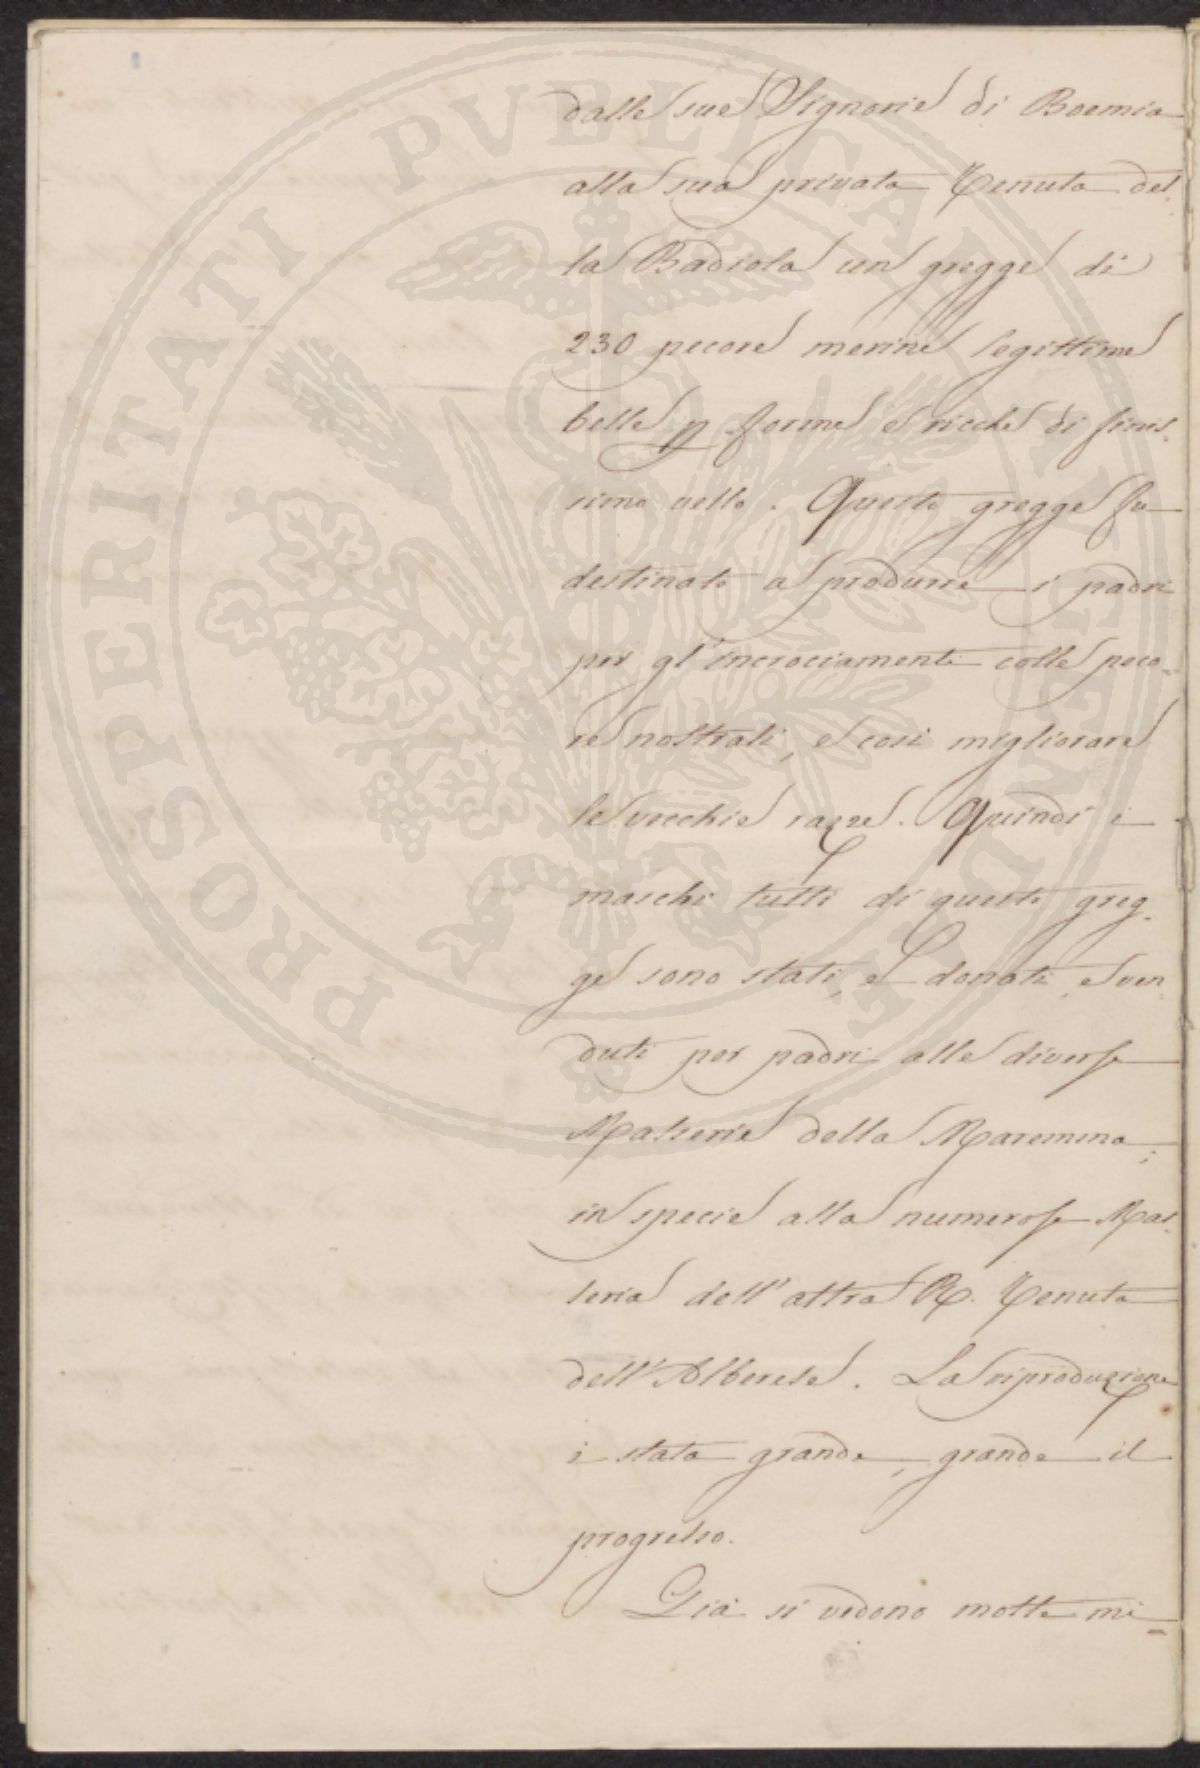 dalle sue Signorie di Boemia
alla sua privata Tenuta del
la Badiola un gregge di
230 pecore merine legittime
belle p forme e ricche di finis-
simo vello. Questo gregge fu
destinato a produrre i padri
per gl'incrociamenti colle peco-
re nostrali, e così migliorare
le vecchie razze. Quindi i
maschi tutti di questo greg-
ge sono stati, e donati, e ven
duti per padri alle diverse
Masserie della Maremma;
in specie alla numerosa Mas-
seria dell'altra R. Tenuta
dell'Alberese. La riproduzione
è stata grande, grande il
progresso.
Già si vedono molte mi-
PROSPERITATI PVBLICAE AVGENDAE